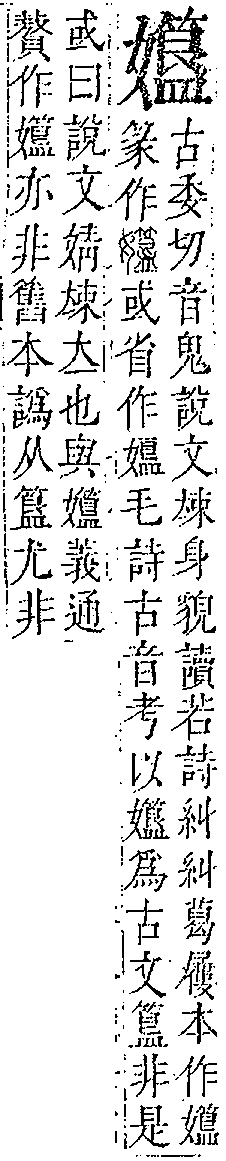 孂
古委切音鬼說文竦身貌讀若詩糾糾葛屨本作孂
篆作或省作毛詩古音考以孂爲古文簋非是
或曰說文婧竦立也與孂義通
贅作孂亦非舊本譌从簋尤非